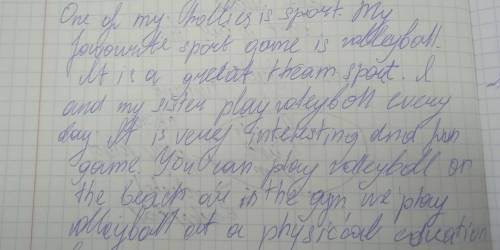 One of my hobbies is sport. My
favourite sport game is volleyball.
It is a great theam sport. I
and my sister play voleyboll every
day. It is very interesting and fun
game. You can play volleyboll on
the beach or in the gym we play
volleyboll at a physical education